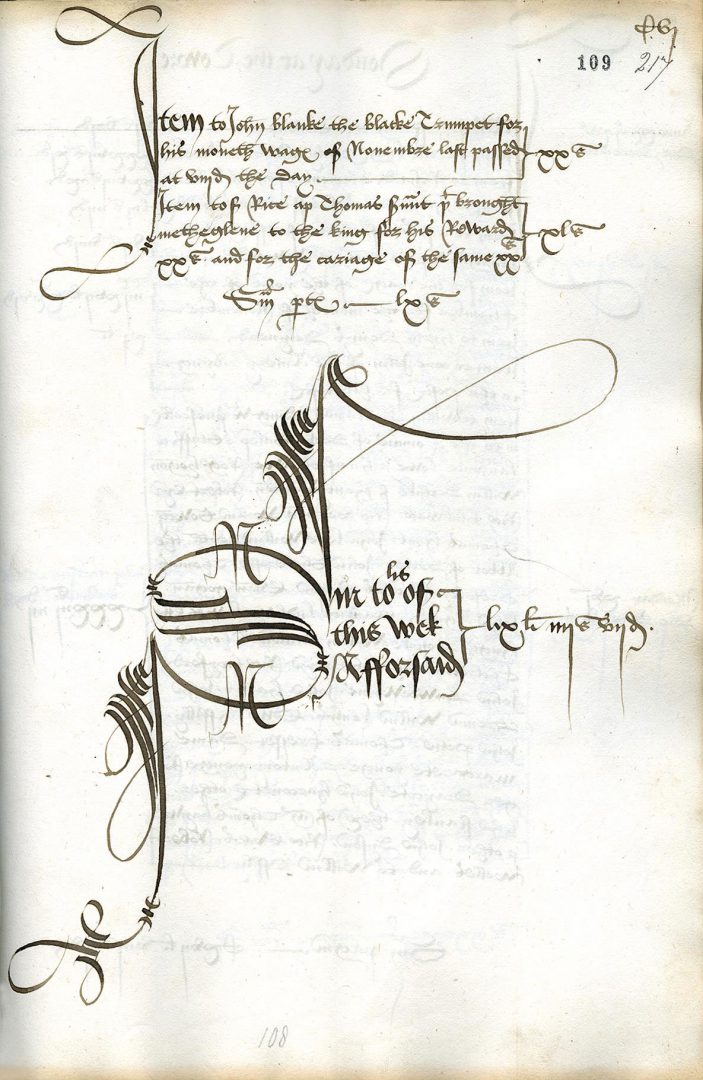 Cvj
109
217
Item to John blanke the blacke Trumpet for
his moneth wage of Novembre last passed
at viijd the day
xxs
Item to Rice ap Thomas brought
metheglene to the king for his Reward
xxs and for the cariage of the same xxs
xls
Sm pte lxs
Sm tols of
this wek
Afforsaid
lixli iiijs viijd.
108